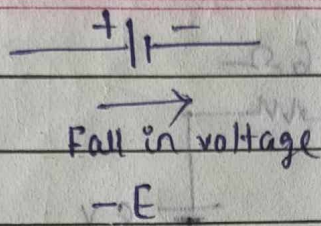 + -
Fall in voltage
- E